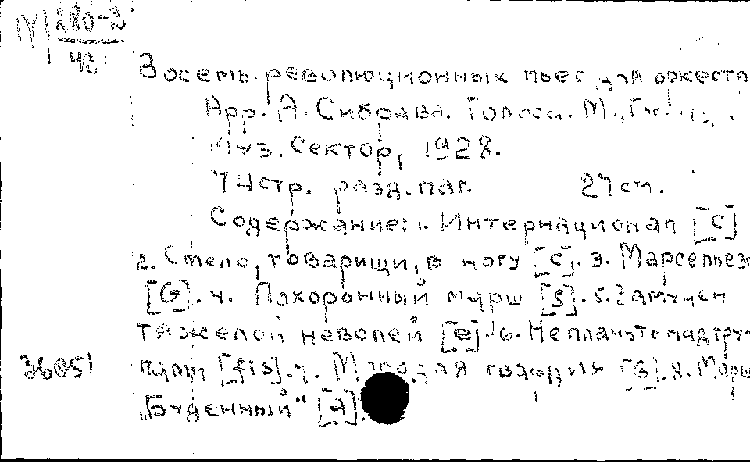 М 280-2
42
Восемь революционных пьес для оркестр
Арр. А. Сибрава. Голоса. М.,
Муз. Сектор, 1928.
74 стр. разд. паг. 27 см.
Содержание: 1. Интернационал [C]
2. Смело, товарищи, в ногу [C]. 3. Марсельез
[G]. 4. Похоронный марш [g]. 5. Замучен
тяжелой неволей [e]. 6. Не плачьте над тру-
36851 пами [fis]. 7. Молодая гвардия [G]. 8. Марш
„Буденный" [d].